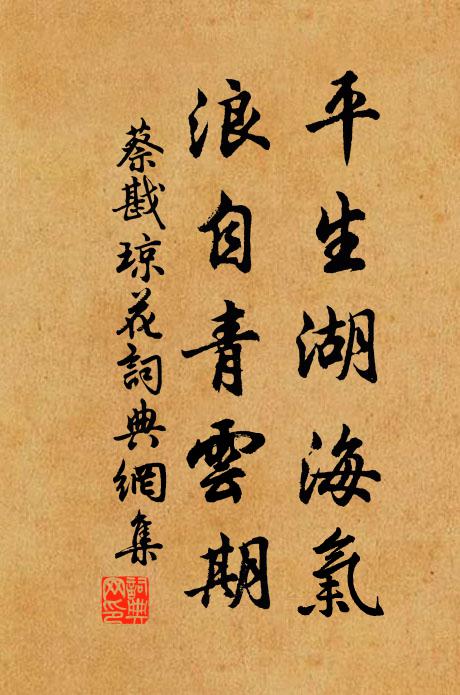 平生湖海氣
浪自青雲期
蔡戡琼花詞典網集
詞典网印